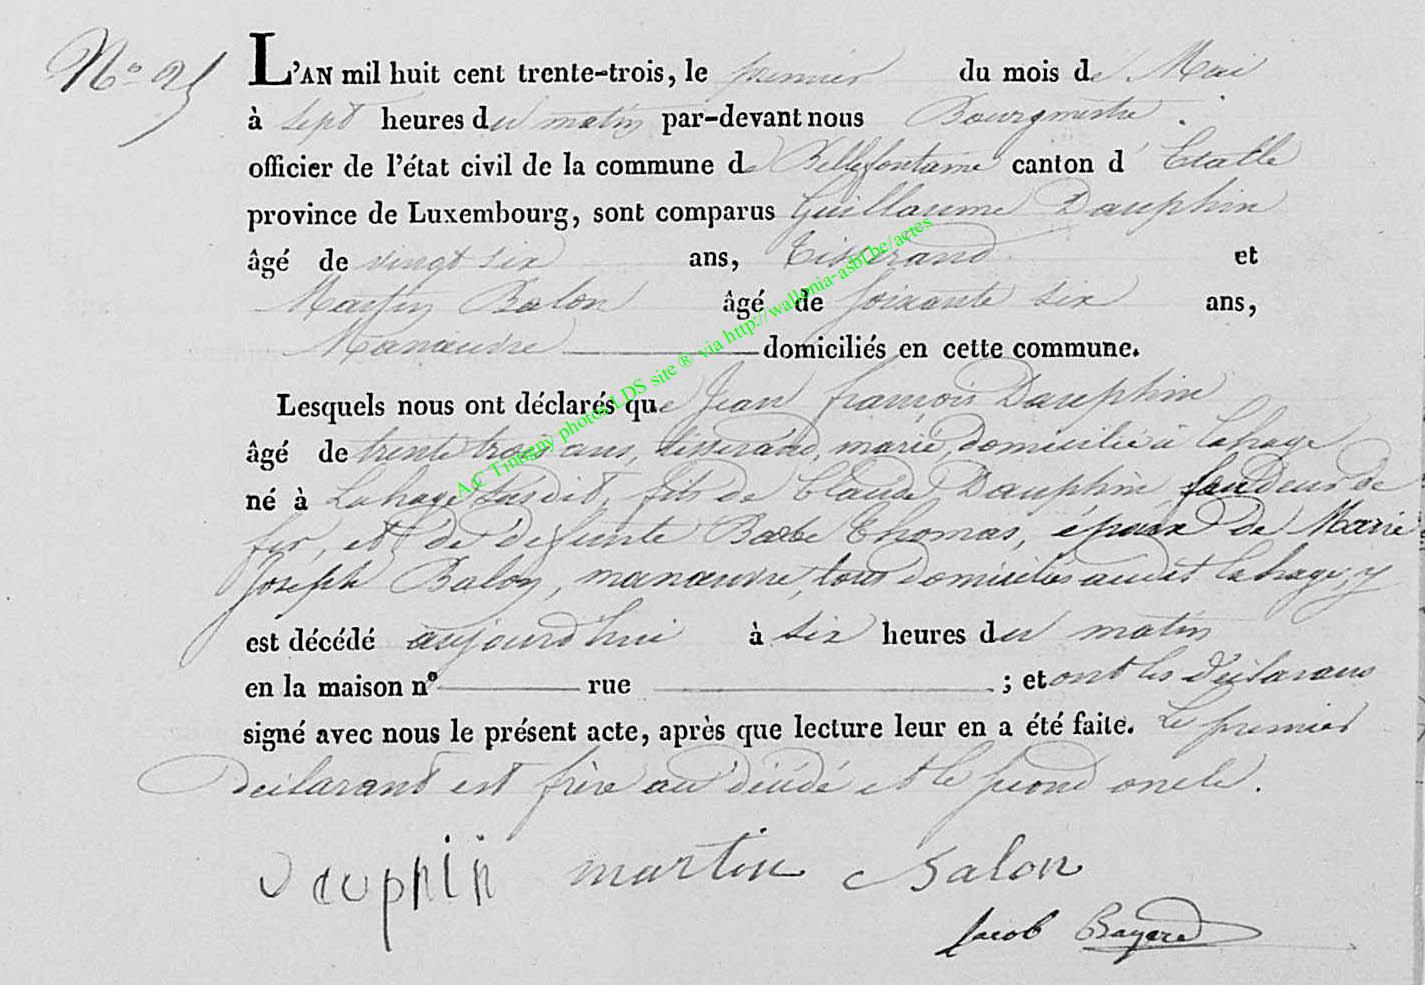 N° 25
L'AN mil huit cent trente-trois, le premier du mois de Mai
à sept heures du matin par-devant nous Bourgmestre.
officier de l'état civil de la commune de Bellefontaine canton d'Etalle
province de Luxembourg, sont comparus Guillaume Dauphin
âgé de vingt six ans, Tisserand et
Martin Balon âgé de soixante six ans,
Manœuvre domiciliés en cette commune.
Lesquels nous ont déclarés que Jean françois Dauphin
âgé de trente trois ans, tisserand, marié domicilié à Lahage
né à Lahage susdit, fils de Claude Dauphin fondeur de
fer, et de défunte Barbe Thomas, époux de Marie
Joseph Balon, manœuvre, tous domiciliés audit Lahage, y
est décédé aujourd'hui à six heures du matin
en la maison n° rue ; et ont les déclarans
signé avec nous le présent acte, après que lecture leur en a été faite. Le premier
déclarant est frère au décédé et le second oncle.
Dauphin martin Balon
Jacob
A.C Tintigny photos LDS site ® via http://wallonia-asbl.be/actes